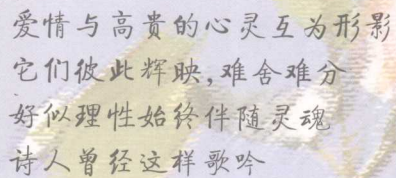 爱情与高贵的心灵互为形影
它们彼此辉映,难舍难分
好似理性始终伴随灵魂
诗人曾经这样歌吟